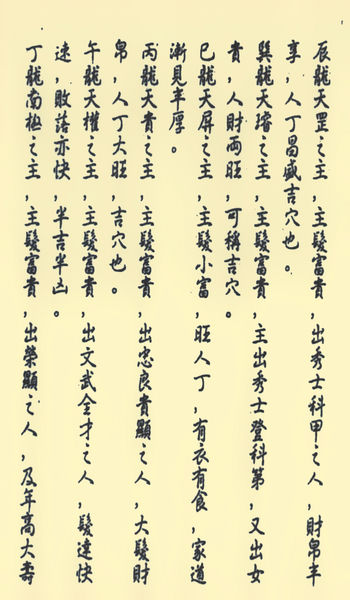 辰龍天罡之主,主髮富貴,出秀士科甲之人,財帛丰
享,人丁昌盛吉穴也。
巽龍天璿之主,主髮富貴,主出秀士登科第,又出女
貴,人財両旺,可稱吉穴。
巳龍天屏之主,主髮小富,旺人丁,有衣有食,家道
漸見丰厚。
丙龍天貴之主,主髮富貴,出忠良貴顯之人,大髮財
帛,人丁大旺,吉穴也。
午龍天權之主,主髮富貴,出文武全才之人,髮達快
速,敗落亦快,半吉半凶。
丁龍南極之主,主髮富貴,出榮顯之人,及年高大壽